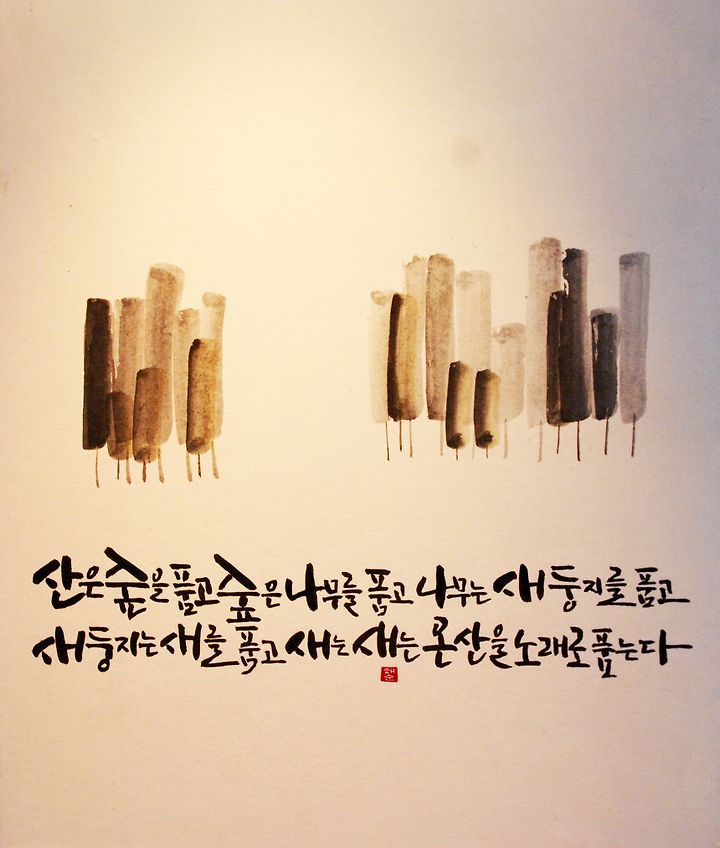 산은 숲을 품고 숲은 나무를 품고 나무는 새둥지를 품고
새둥지는 새를 품고 새는 새는 온산을 노래로 품는다